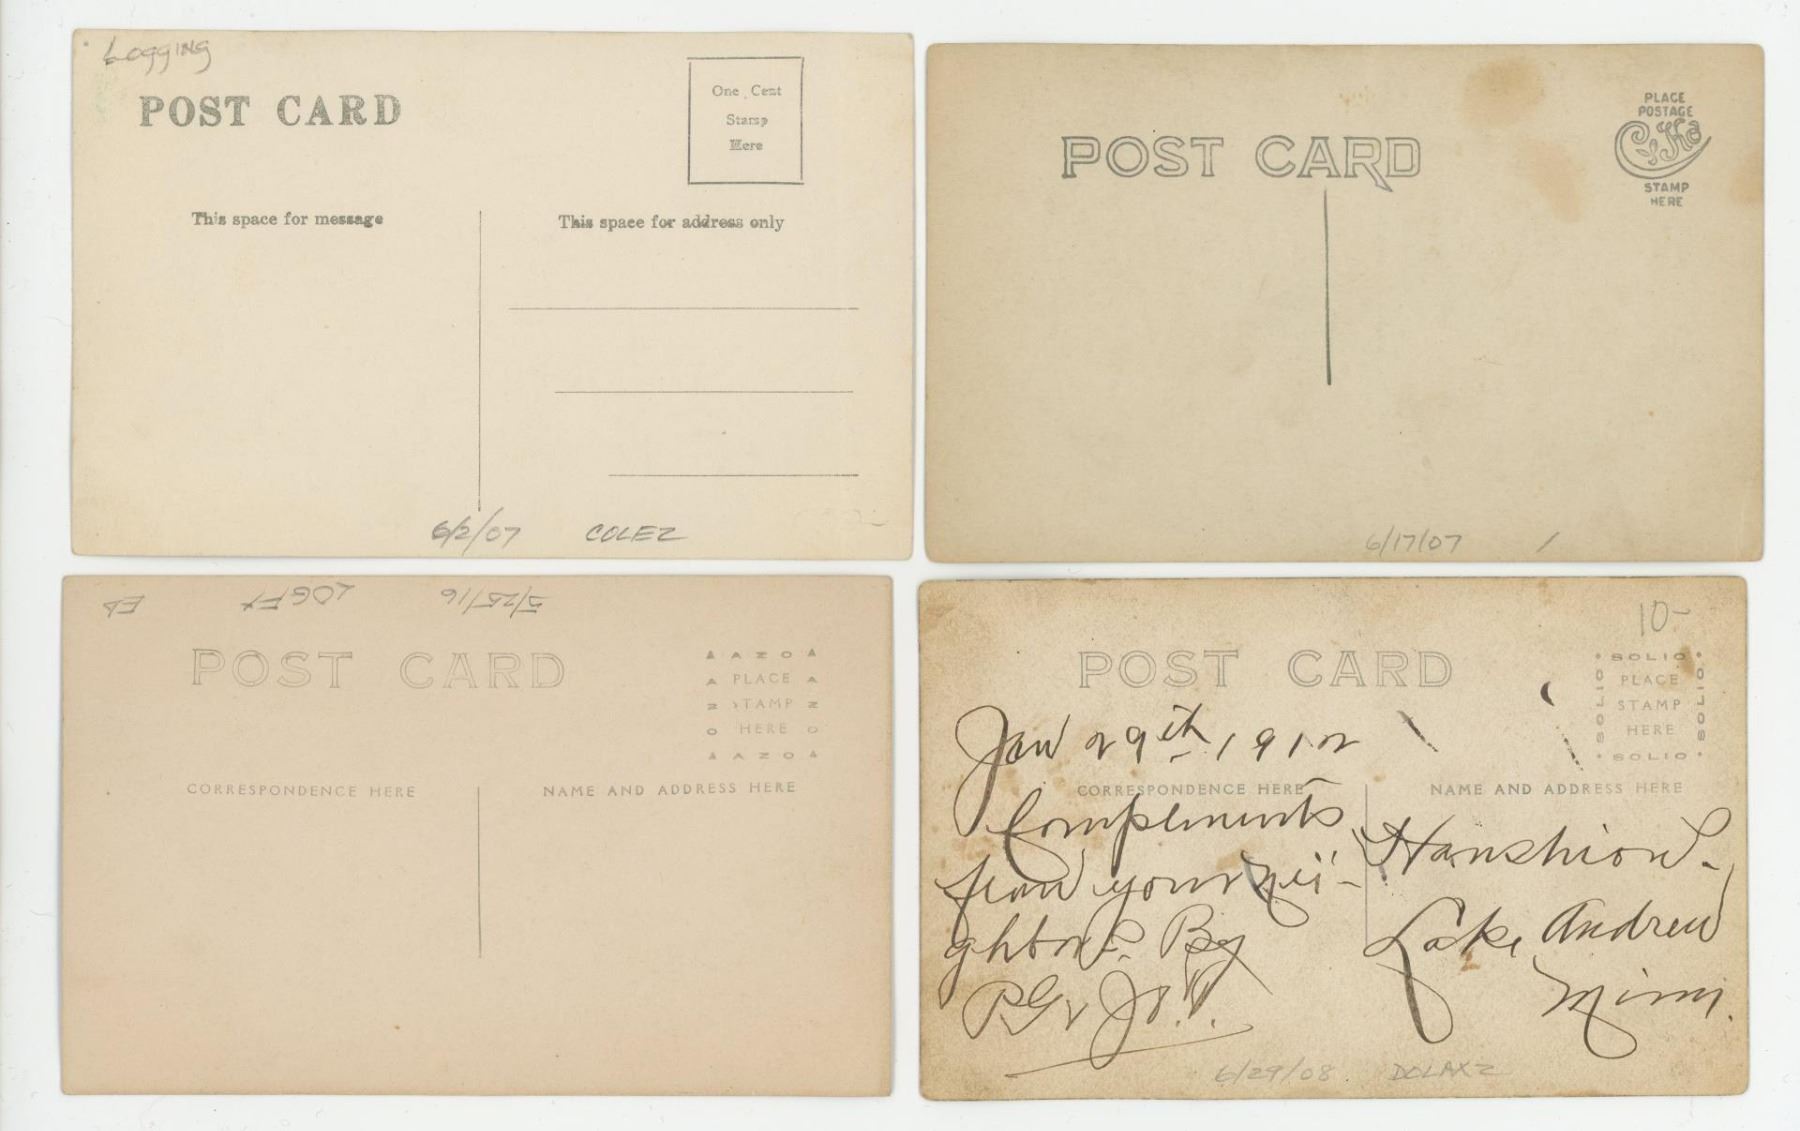 Logging
POST CARD
One Cent
Stamp
Here
This space for message
This space for address only
6/2/07 COLEZ
POST CARD
PLACE
POSTAGE
CyKo
STAMP
HERE
6/17/07 /
5/25/16 LOGFX ED
POST CARD
AZO
PLACE
STAMP
HERE
AZO
CORRESPONDENCE HERE
NAME AND ADDRESS HERE
10-
POST CARD
SOLIO
SOLIO
PLACE
STAMP
HERE
SOLIO
SOLIO
Jan 29th, 1912
CORRESPONDENCE HERE
NAME AND ADDRESS HERE
Compliments
from your Nei-
ghbors. By
Lake Andrew
Minn.
6/29/08 DOLAXZ